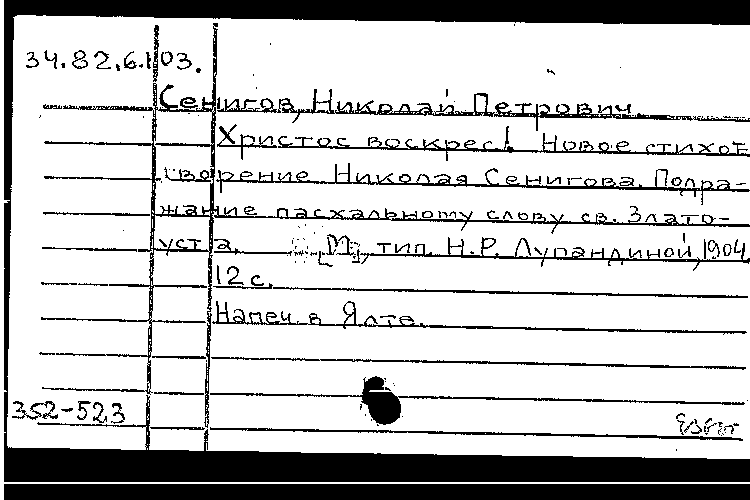 34.82.6.103.
Сенигов, Николай Петрович.
Христос воскрес! Новое стихот-
ворение Николая Сенигова. Подра-
жание пасхальному слову св. Злато-
уста. [М], тип. Н.Р. Лупандиной, 1904.
12 с.
Напеч. в Ялте.
352-523